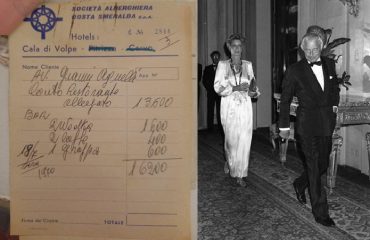 SOCIETÀ ALBERGHIERA
COSTA SMERALDA s.p.a.
Hotels:
Cala di Volpe
3
Nome Cliente
Av. Gianni Agnelli
Conto Ristorante
allegato 13600
Bar
2 Wodka 1600
2 Caffè 400
1 grappa 600
16200
Firma del Cliente
TOTALE